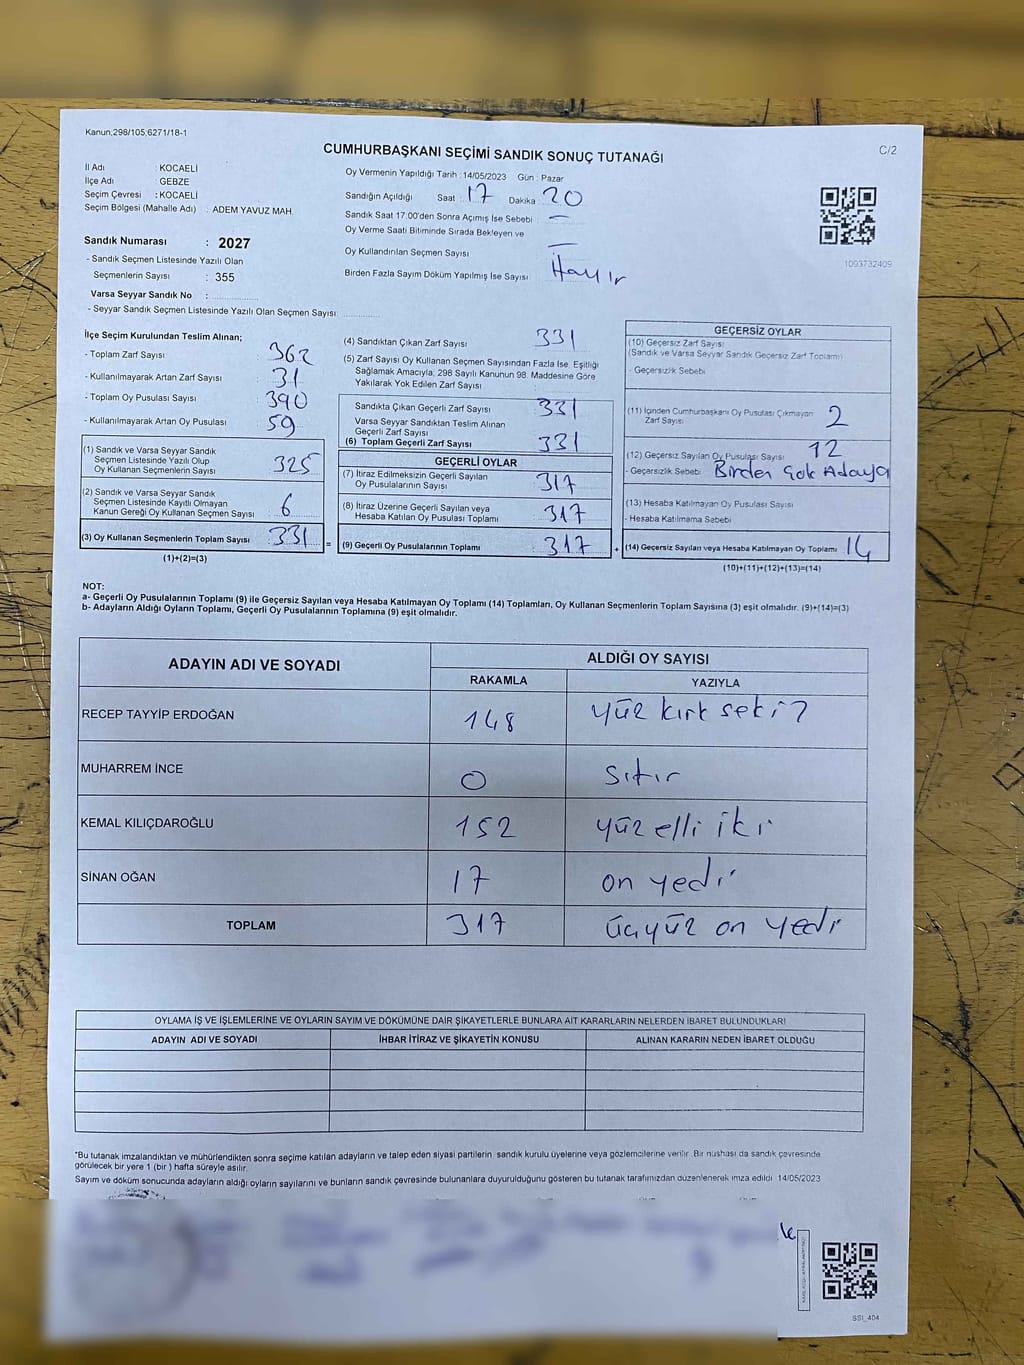 Kanun,298/105,6271/18-1
C/2
CUMHURBAŞKANI SEÇİMİ SANDIK SONUÇ TUTANAĞI
İl Adı : KOCAELİ
İlçe Adı : GEBZE
Seçim Çevresi : KOCAELİ
Seçim Bölgesi (Mahalle Adı) : ADEM YAVUZ MAH.
Sandık Numarası : 2027
- Sandık Seçmen Listesinde Yazılı Olan
Seçmenlerin Sayısı : 355
Varsa Seyyar Sandık No :
- Seyyar Sandık Seçmen Listesinde Yazılı Olan Seçmen Sayısı:
Oy Vermenin Yapıldığı Tarih :14/05/2023 Gün : Pazar
Sandığın Açıldığı Saat : 17 Dakika : 20
Sandık Saat 17:00'den Sonra Açımış İse Sebebi : —
Oy Verme Saati Bitiminde Sırada Bekleyen ve
Oy Kullandırılan Seçmen Sayısı —
Birden Fazla Sayım Döküm Yapılmış İse Sayısı Hayır
1093732409
İlçe Seçim Kurulundan Teslim Alınan;
- Toplam Zarf Sayısı : 362
- Kullanılmayarak Artan Zarf Sayısı : 31
- Toplam Oy Pusulası Sayısı : 390
- Kullanılmayarak Artan Oy Pusulası : 59
(1) Sandık ve Varsa Seyyar Sandık
Seçmen Listesinde Yazılı Olup
Oy Kullanan Seçmenlerin Sayısı : 325
(2) Sandık ve Varsa Seyyar Sandık
Seçmen Listesinde Kayıtlı Olmayan
Kanun Gereği Oy Kullanan Seçmen Sayısı : 6
(3) Oy Kullanan Seçmenlerin Toplam Sayısı : 331
(1)+(2)=(3)
=
(4) Sandıktan Çıkan Zarf Sayısı 331
(5) Zarf Sayısı Oy Kullanan Seçmen Sayısından Fazla İse, Eşitliği
Sağlamak Amacıyla; 298 Sayılı Kanunun 98. Maddesine Göre
Yakılarak Yok Edilen Zarf Sayısı
Sandıkta Çıkan Geçerli Zarf Sayısı 331
Varsa Seyyar Sandıktan Teslim Alınan
Geçerli Zarf Sayısı
(6) Toplam Geçerli Zarf Sayısı 331
GEÇERLİ OYLAR
(7) İtiraz Edilmeksizin Geçerli Sayılan
Oy Pusulalarının Sayısı : 317
(8) İtiraz Üzerine Geçerli Sayılan veya
Hesaba Katılan Oy Pusulası Toplamı : 317
(9) Geçerli Oy Pusulalarının Toplamı : 317
+
GEÇERSİZ OYLAR
(10) Geçersiz Zarf Sayısı
(Sandık ve Varsa Seyyar Sandık Geçersiz Zarf Toplamı)
- Geçersizlik Sebebi
(11) İçinden Cumhurbaşkanı Oy Pusulası Çıkmayan
Zarf Sayısı 2
(12) Geçersiz Sayılan Oy Pusulası Sayısı 12
- Geçersizlik Sebebi Birden Çok Adaya
(13) Hesaba Katılmayan Oy Pusulası Sayısı
- Hesaba Katılmama Sebebi
(14) Geçersiz Sayılan veya Hesaba Katılmayan Oy Toplamı 14
(10)+(11)+(12)+(13)=(14)
NOT:
a- Geçerli Oy Pusulalarının Toplamı (9) ile Geçersiz Sayılan veya Hesaba Katılmayan Oy Toplamı (14) Toplamları, Oy Kullanan Seçmenlerin Toplam Sayısına (3) eşit olmalıdır. (9)+(14)=(3)
b- Adayların Aldığı Oyların Toplamı, Geçerli Oy Pusulalarının Toplamına (9) eşit olmalıdır.
ADAYIN ADI VE SOYADI
ALDIĞI OY SAYISI
RAKAMLA YAZIYLA
RECEP TAYYİP ERDOĞAN 148 yüz kırk sekiz
MUHARREM İNCE 0 sıfır
KEMAL KILIÇDAROĞLU 152 yüz elli iki
SİNAN OĞAN 17 on yedi
TOPLAM 317 üçyüz on yedi
OYLAMA İŞ VE İŞLEMLERİNE VE OYLARIN SAYIM VE DÖKÜMÜNE DAİR ŞİKAYETLERLE BUNLARA AİT KARARLARIN NELERDEN İBARET BULUNDUKLARI
ADAYIN ADI VE SOYADI İHBAR İTİRAZ VE ŞİKAYETİN KONUSU ALINAN KARARIN NEDEN İBARET OLDUĞU
*Bu tutanak imzalandıktan ve mühürlendikten sonra seçime katılan adayların ve talep eden siyasi partilerin sandık kurulu üyelerine veya gözlemcilerine verilir. Bir nüshası da sandık çevresinde
görülecek bir yere 1 (bir ) hafta süreyle asılır.
Sayım ve döküm sonucunda adayların aldığı oyların sayılarını ve bunların sandık çevresinde bulunanlara duyurulduğunu gösteren bu tutanak tarafımızdan düzenlenerek imza edildi. 14/05/2023
SSI_404